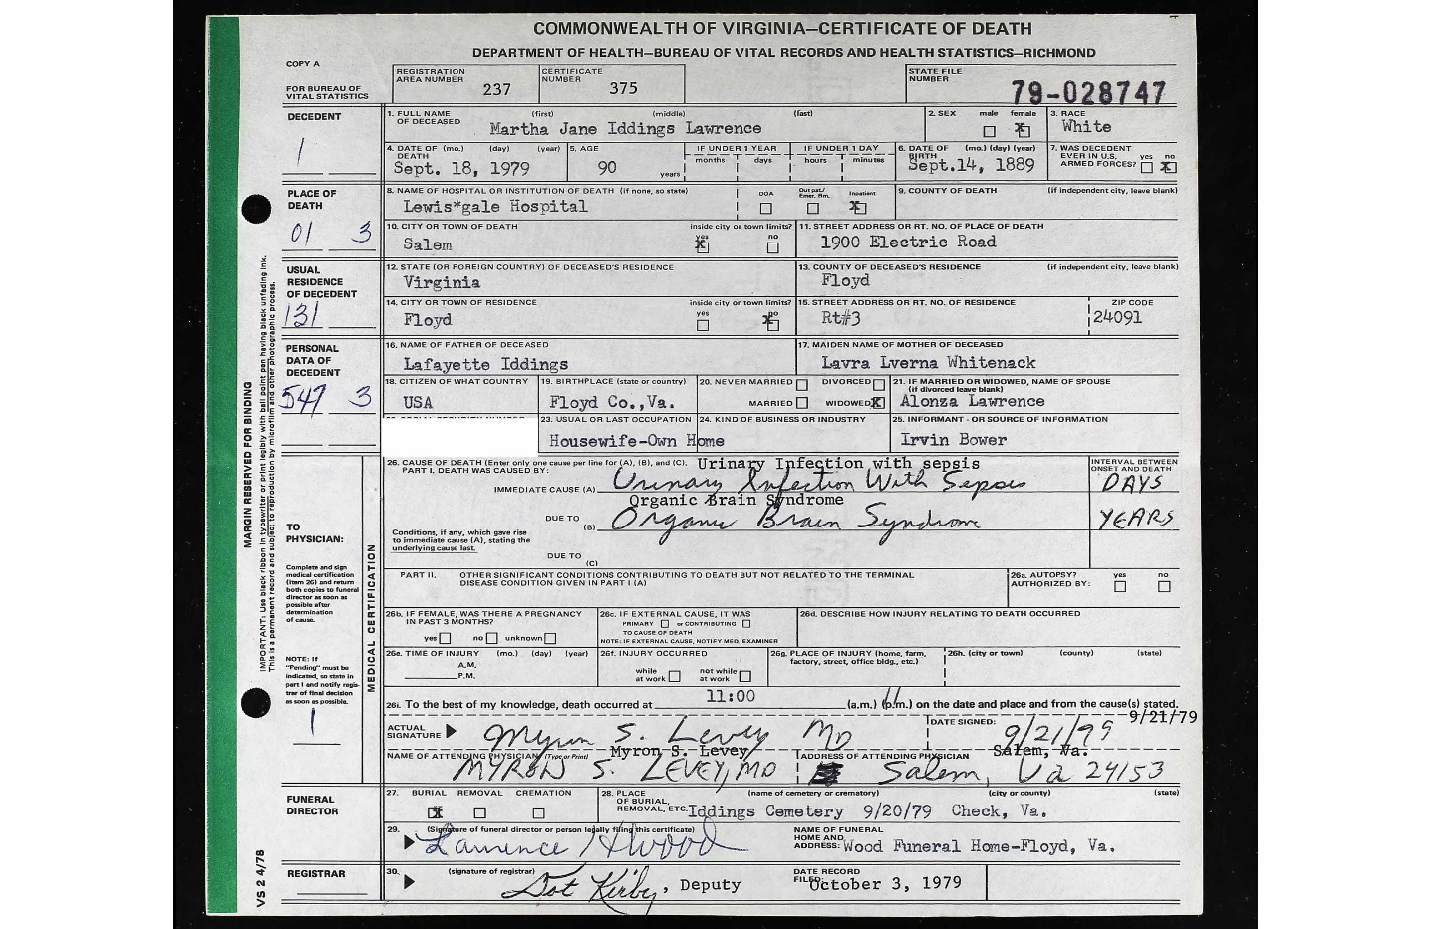 COMMONWEALTH OF VIRGINIA—CERTIFICATE OF DEATH
DEPARTMENT OF HEALTH—BUREAU OF VITAL RECORDS AND HEALTH STATISTICS—RICHMOND
COPY A
FOR BUREAU OF VITAL STATISTICS
REGISTRATION AREA NUMBER 237
CERTIFICATE NUMBER 375
STATE FILE NUMBER 79-028747
DECEDENT
1
1. FULL NAME OF DECEASED (first) (middle) (last)
Martha Jane Iddings Lawrence
2. SEX male female X
3. RACE White
4. DATE OF DEATH (mo.) (day) (year)
Sept. 18, 1979
5. AGE 90 years
IF UNDER 1 YEAR months days
IF UNDER 1 DAY hours minutes
6. DATE OF BIRTH (mo.) (day) (year)
Sept.14, 1889
7. WAS DECEDENT EVER IN U.S. ARMED FORCES? yes no X
PLACE OF DEATH
01 3
8. NAME OF HOSPITAL OR INSTITUTION OF DEATH (if none, so state)
Lewis*gale Hospital
DOA Out pat./Emer. Rm. Inpatient X
9. COUNTY OF DEATH (if independent city, leave blank)
10. CITY OR TOWN OF DEATH inside city or town limits? yes X no
Salem
11. STREET ADDRESS OR RT. NO. OF PLACE OF DEATH
1900 Electric Road
USUAL RESIDENCE OF DECEDENT
131
12. STATE (OR FOREIGN COUNTRY) OF DECEASED'S RESIDENCE
Virginia
13. COUNTY OF DECEASED'S RESIDENCE (if independent city, leave blank)
Floyd
14. CITY OR TOWN OF RESIDENCE inside city or town limits? yes no X
Floyd
15. STREET ADDRESS OR RT. NO. OF RESIDENCE
Rt#3
ZIP CODE
24091
PERSONAL DATA OF DECEDENT
547 3
16. NAME OF FATHER OF DECEASED
Lafayette Iddings
17. MAIDEN NAME OF MOTHER OF DECEASED
Lavra Lverna Whitenack
18. CITIZEN OF WHAT COUNTRY
USA
19. BIRTHPLACE (state or country)
Floyd Co.,Va.
20. NEVER MARRIED DIVORCED
MARRIED WIDOWED X
21. IF MARRIED OR WIDOWED, NAME OF SPOUSE
(if divorced leave blank)
Alonza Lawrence
23. USUAL OR LAST OCCUPATION
24. KIND OF BUSINESS OR INDUSTRY
Housewife-Own Home
25. INFORMANT - OR SOURCE OF INFORMATION
Irvin Bower
MARGIN RESERVED FOR BINDING
IMPORTANT: Use black ribbon in typewriter or print legibly with ball point pen having black unfading ink.
This is a permanent record and subject to reproduction by microfilm and other photographic process.
TO PHYSICIAN:
Complete and sign medical certification (item 26) and return both copies to funeral director as soon as possible after determination of cause.
NOTE: If "Pending" must be indicated, so state in part I and notify registrar of final decision as soon as possible.
1
MEDICAL CERTIFICATION
26. CAUSE OF DEATH (Enter only one cause per line for (A), (B), and (C). Urinary Infection with sepsis
PART I. DEATH WAS CAUSED BY:
INTERVAL BETWEEN ONSET AND DEATH
IMMEDIATE CAUSE (A) Urinary Infection With Sepsis DAYS
Organic Brain Syndrome
DUE TO (B) Organic Brain Syndrome YEARS
Conditions, if any, which gave rise to immediate cause (A), stating the underlying cause last.
DUE TO (C)
PART II. OTHER SIGNIFICANT CONDITIONS CONTRIBUTING TO DEATH BUT NOT RELATED TO THE TERMINAL DISEASE CONDITION GIVEN IN PART I (A)
26a. AUTOPSY? AUTHORIZED BY: yes no
26b. IF FEMALE, WAS THERE A PREGNANCY IN PAST 3 MONTHS?
yes no unknown
26c. IF EXTERNAL CAUSE, IT WAS
PRIMARY or CONTRIBUTING
TO CAUSE OF DEATH
NOTE: IF EXTERNAL CAUSE, NOTIFY MED. EXAMINER
26d. DESCRIBE HOW INJURY RELATING TO DEATH OCCURRED
26e. TIME OF INJURY (mo.) (day) (year)
A.M.
P.M.
26f. INJURY OCCURRED
while at work not while at work
26g. PLACE OF INJURY (home, farm, factory, street, office bldg., etc.)
26h. (city or town) (county) (state)
11:00
26i. To the best of my knowledge, death occurred at (a.m.) (p.m.) on the date and place and from the cause(s) stated.
9/21/79
ACTUAL SIGNATURE Myron S. Levey MD
DATE SIGNED: 9/21/79
Myron S. Levey
Salem, Va.
NAME OF ATTENDING PHYSICIAN (Type or Print)
MYRON S. LEVEY, MD
ADDRESS OF ATTENDING PHYSICIAN
Salem, Va 24153
FUNERAL DIRECTOR
27. BURIAL X REMOVAL CREMATION
28. PLACE OF BURIAL, REMOVAL, ETC. (name of cemetery or crematory) (city or county) (state)
Iddings Cemetery 9/20/79 Check, Va.
29. (Signature of funeral director or person legally filing this certificate)
NAME OF FUNERAL HOME AND ADDRESS: Wood Funeral Home-Floyd, Va.
REGISTRAR
30. (signature of registrar)
Dot Kirby, Deputy
DATE RECORD FILED: October 3, 1979
VS 2 4/78